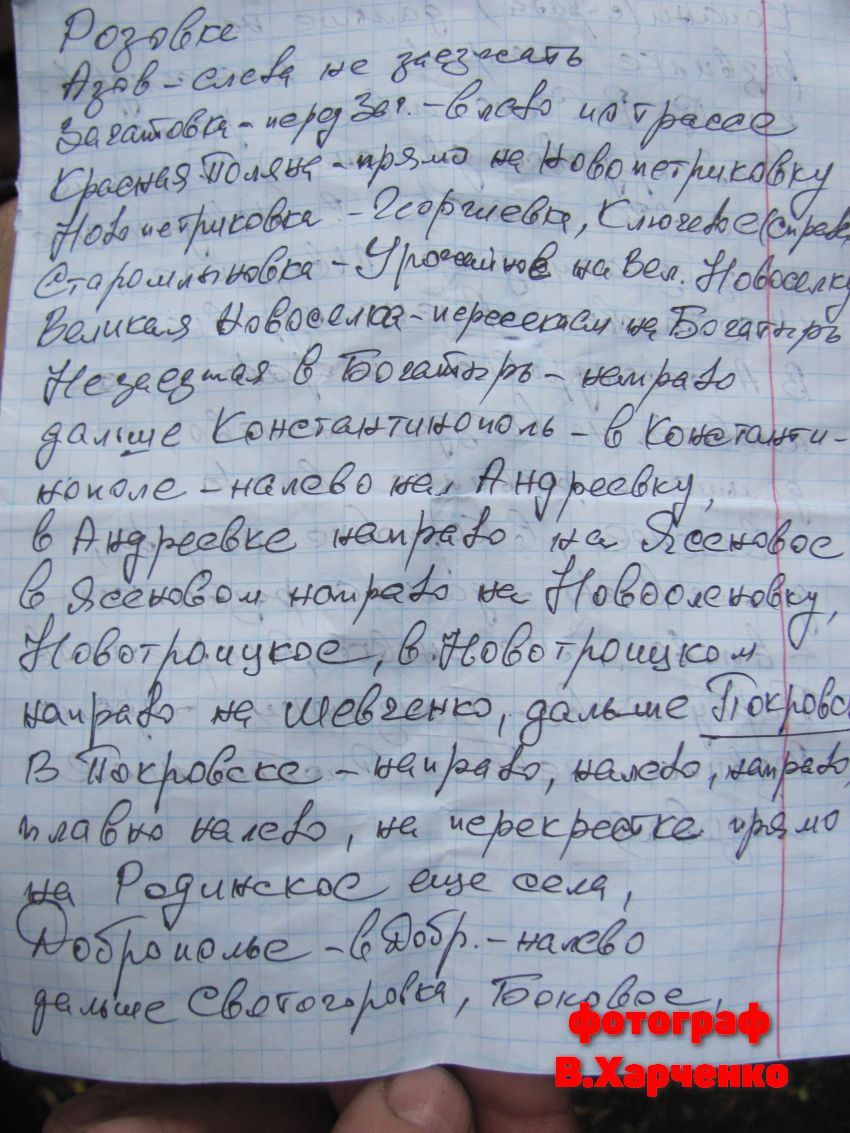 Розовке
Азов - слева не заезжать
Зачатовка - перед Зач. - влево по трассе
Красная Поляна - прямо на Новопетриковку
Новопетриковка - Георгиевка, Ключевое (справа
Старомлыновка - Урожайное на Вел. Новоселку
Великая Новоселка - пересекаем на Богатырь
Не заезжая в Богатырь - направо
дальше Константинополь - в Константи-
нополе - налево на Андреевку,
в Андреевке направо на Ясеновое
в Ясеновом направо на Новооленовку,
Новотроицкое, в Новотроицком
направо на Шевченко, дальше Покровск
В Покровске - направо, налево, направо,
плавно налево, на перекрестке прямо
на Родинское еще села,
Доброполье - в Добр. - налево
дальше Святогоровка, Боковое,
фотограф
В.Харченко